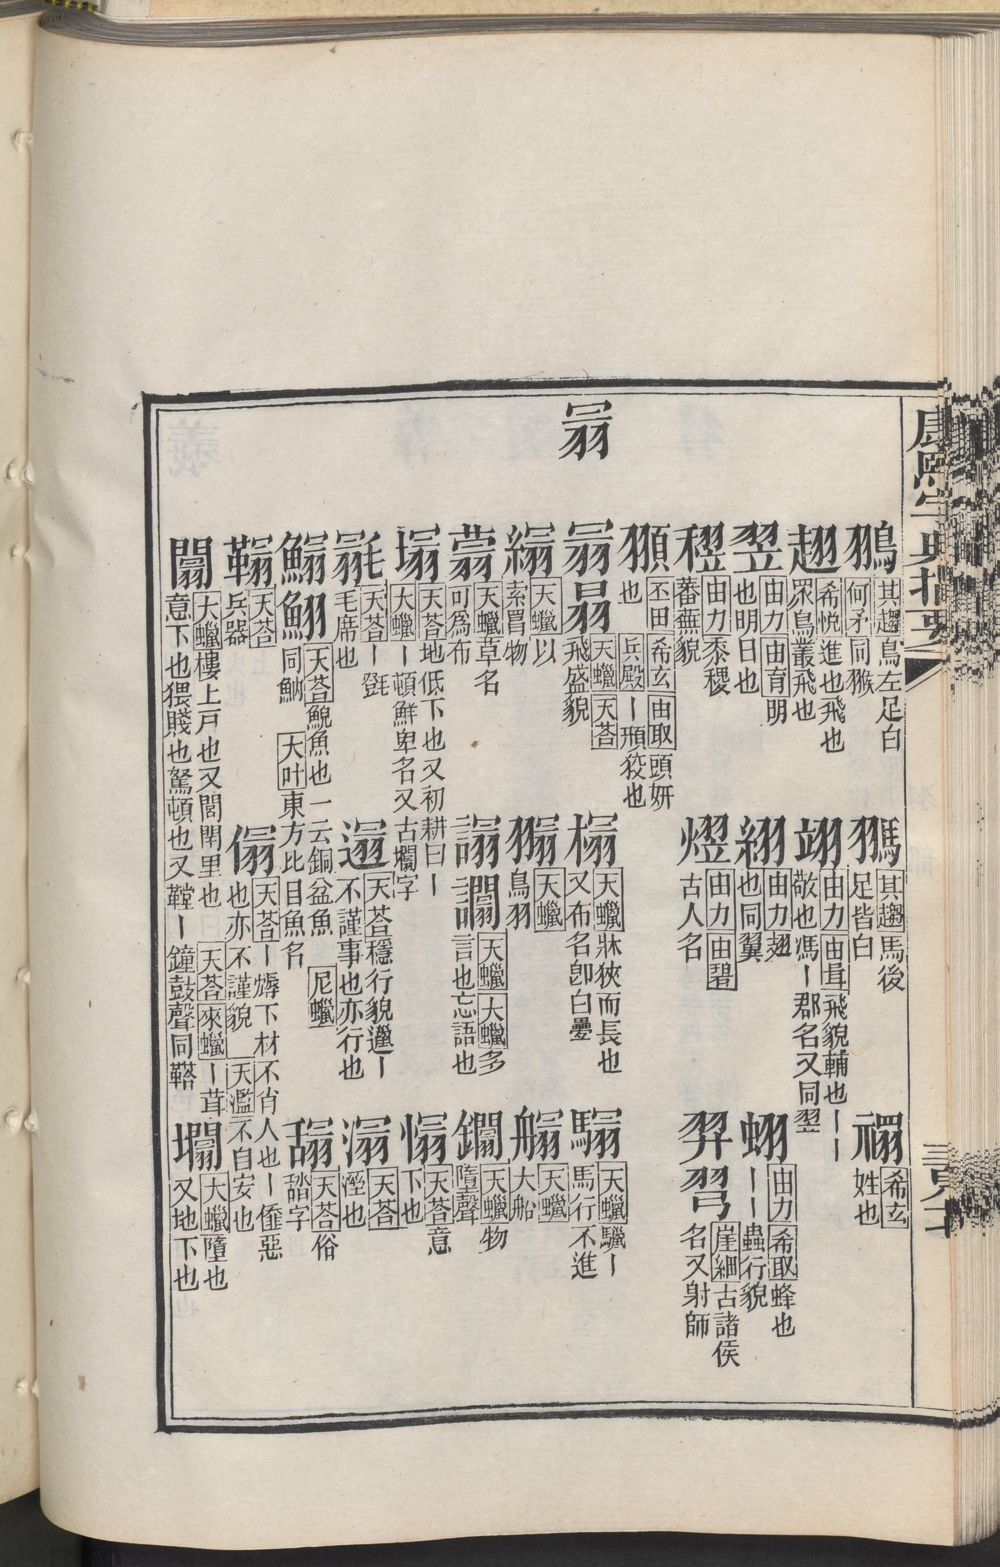 康熙字典撮要
其趨鳥左足白
其趨馬後足皆白
希玄姓也
何矛同猴
趐希悅進也飛也眾鳥叢飛也
翊由力由揖飛貌輔也丨丨敬也馮丨郡名又同翌
翌由力由育明也明日也
由力翅也同翼
由力希取蜂也丨丨蟲行貌
由力黍稷蕃蕪貌
熤由力由碧古人名
羿羿崖細古諸侯名又射師
丕田希玄由取頭妍也兵殿丨頨狡也
𦐇
𦐇天蠟天荅飛盛貌
榻天蠟牀狹而長也又布名卽白疊
天蠟驖丨馬行不進
天蠟以索罥物
天蠟鳥羽
天蠟大船
天蠟草名可為布
天蠟大蠟多言也忘語也
鑞天蠟物墮聲
塌天荅地低下也又初耕曰丨大蠟丨頓鮮卑名又古壛字
毾天荅丨㲪毛席也
遢天荅穩行貌邋丨不謹事也亦行也
天荅意下也
溻天荅溼也
鰨天荅鯢魚也一云銅盆魚尼蠟同魶大叶東方比目魚名
天荅兵器
傝天荅丨𠎷下材不肖人也丨㑌惡也亦不謹貌天濫不自安也
天荅俗䑜字
闒大蠟樓上戸也又閻閈里也天荅來蠟丨茸意下也猥賤也駑頓也又鞺丨鐘鼓聲同鞳
大蠟墮也又地下也